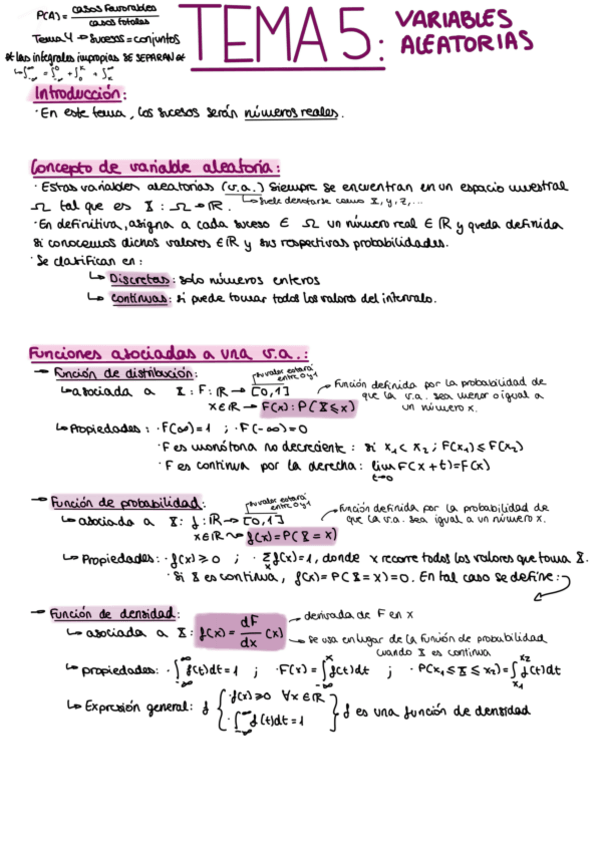 P(A) = casos favorables / casos totales
Tema 4 → sucesos = conjuntos
* las integrales impropias SE SEPARAN *
↳ ∫_{-∞}^{∞} = ∫_{-∞}^{0} + ∫_{0}^{K} + ∫_{K}^{∞}
TEMA 5: VARIABLES ALEATORIAS
Introducción:
· En este tema, los sucesos serán números reales.
Concepto de variable aleatoria:
· Estas variables aleatorias (v.a.) siempre se encuentran en un espacio muestral
Ω tal que es X : Ω → ℝ. ↳ suele denotarse como X, Y, Z, ...
· En definitiva, asigna a cada suceso ∈ Ω un número real ∈ ℝ y queda definida
si conocemos dichos valores ∈ ℝ y sus respectivas probabilidades.
· Se clasifican en:
↳ Discretas: solo números enteros
↳ Continuas: si puede tomar todos los valores del intervalo.
Funciones asociadas a una v.a.:
→ Función de distribución:
su valor estará entre 0 y 1
↳ asociada a X : F : ℝ → [0,1]
x ∈ ℝ → F(x) : P(X ≤ x)
función definida por la probabilidad de
que la v.a. sea menor o igual a
un número x.
↳ Propiedades: · F(∞) = 1 ; · F(-∞) = 0
· F es monótona no decreciente: si x₁ < x₂ ; F(x₁) ≤ F(x₂)
· F es continua por la derecha: lim_{t→0} F(x + t) = F(x)
→ Función de probabilidad:
su valor estará entre 0 y 1
↳ asociada a X : f : ℝ → [0,1]
x ∈ ℝ ⤳ f(x) = P(X = x)
función definida por la probabilidad de
que la v.a. sea igual a un número x.
↳ Propiedades: · f(x) ≥ 0 ; · Σ_x f(x) = 1, donde x recorre todos los valores que toma X.
· Si X es continua, f(x) = P(X = x) = 0. En tal caso se define:
→ Función de densidad:
↳ asociada a X : f(x) = dF/dx (x)
→ derivada de F en x
↳ se usa en lugar de la función de probabilidad
cuando X es continua
↳ propiedades: · ∫_{-∞}^{∞} f(t)dt = 1 ; · F(x) = ∫_{-∞}^{x} f(t)dt ; · P(x₁ ≤ X ≤ x₂) = ∫_{x₁}^{x₂} f(t)dt
↳ Expresión general: f { · f(x) ≥ 0 ∀x ∈ ℝ
· ∫_{-∞}^{∞} f(t)dt = 1 } f es una función de densidad